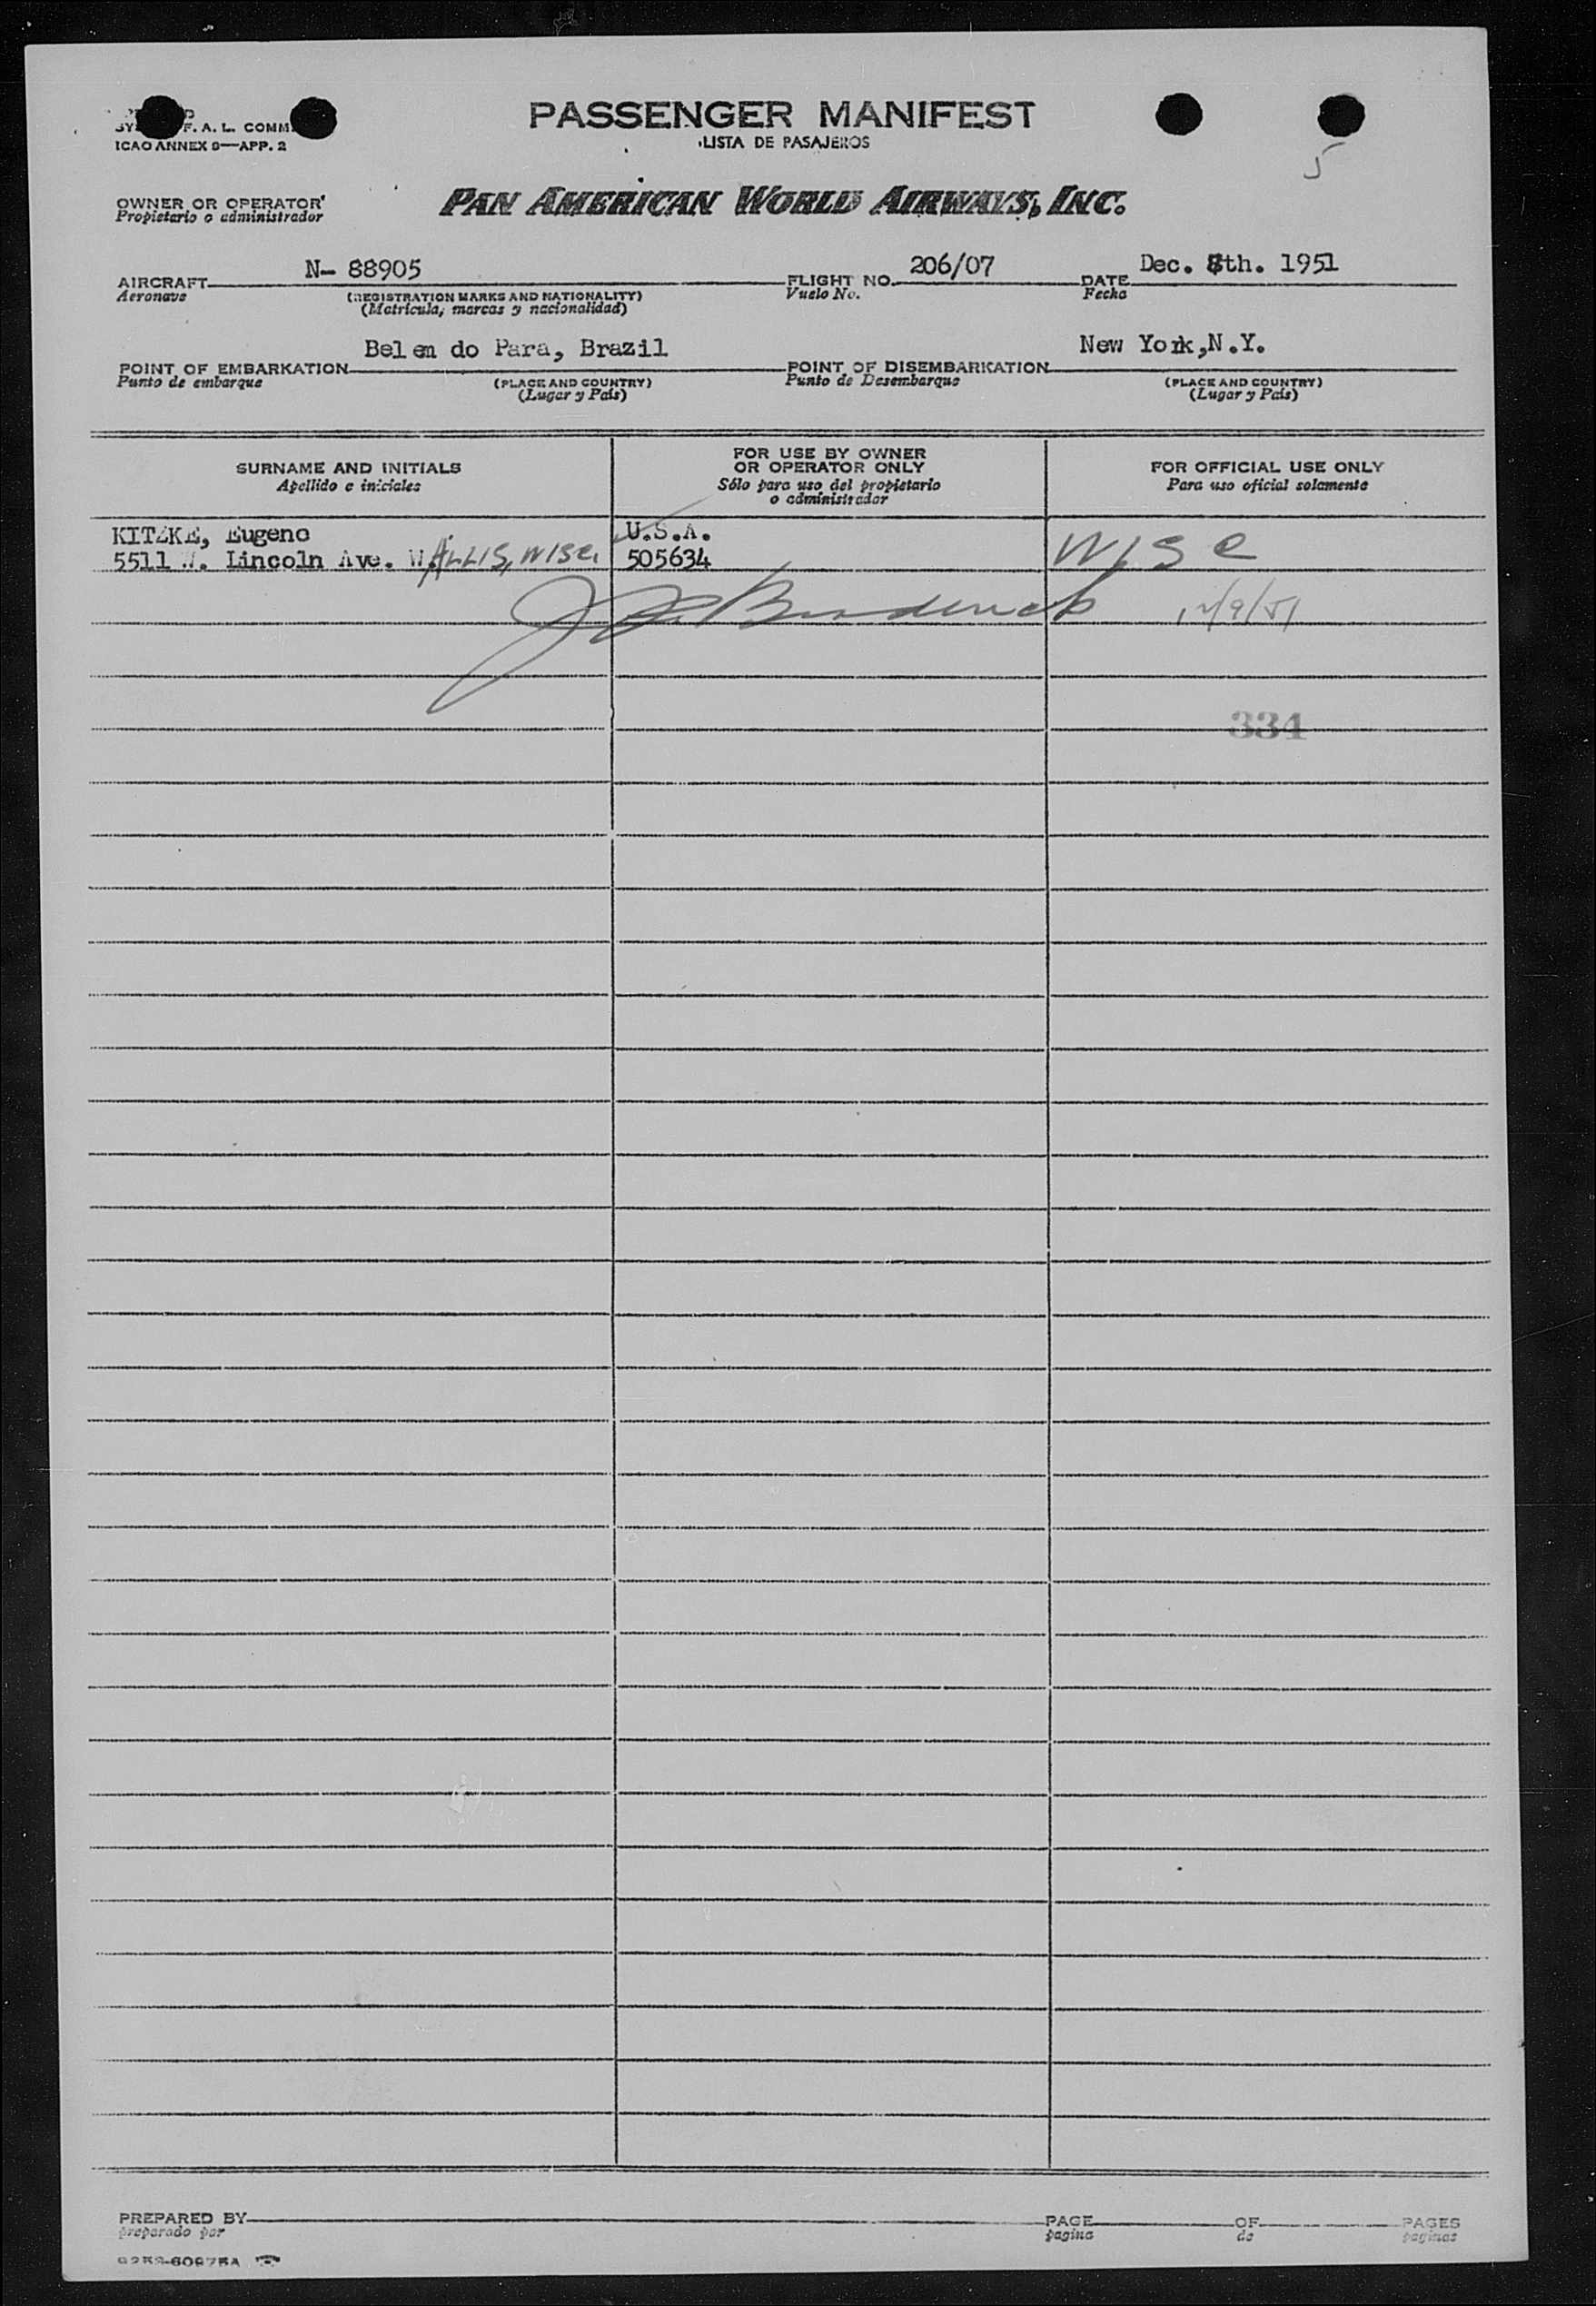 F. A. L. COMM.
ICAO ANNEX 9—APP. 2
PASSENGER MANIFEST
LISTA DE PASAJEROS
5
OWNER OR OPERATOR
Propietario o administrador
PAN AMERICAN WORLD AIRWAYS, INC.
AIRCRAFT N- 88905 FLIGHT NO. 206/07 DATE Dec. 8th. 1951
Aeronave (REGISTRATION MARKS AND NATIONALITY) Vuelo No. Fecha
(Matricula, marcas y nacionalidad)
POINT OF EMBARKATION Belem do Para, Brazil POINT OF DISEMBARKATION New York,N.Y.
Punto de embarque (PLACE AND COUNTRY) Punto de Desembarque (PLACE AND COUNTRY)
(Lugar y País) (Lugar y País)
SURNAME AND INITIALS
Apellido e iniciales
FOR USE BY OWNER
OR OPERATOR ONLY
Sólo para uso del propietario
o administrador
FOR OFFICIAL USE ONLY
Para uso oficial solamente
KITZKE, Eugene U.S.A.
5511 W. Lincoln Ave. W.ALLIS, WISC. 505634 WISC
Broderick 12/9/51
334
PREPARED BY PAGE OF PAGES
preparado por pagina de paginas